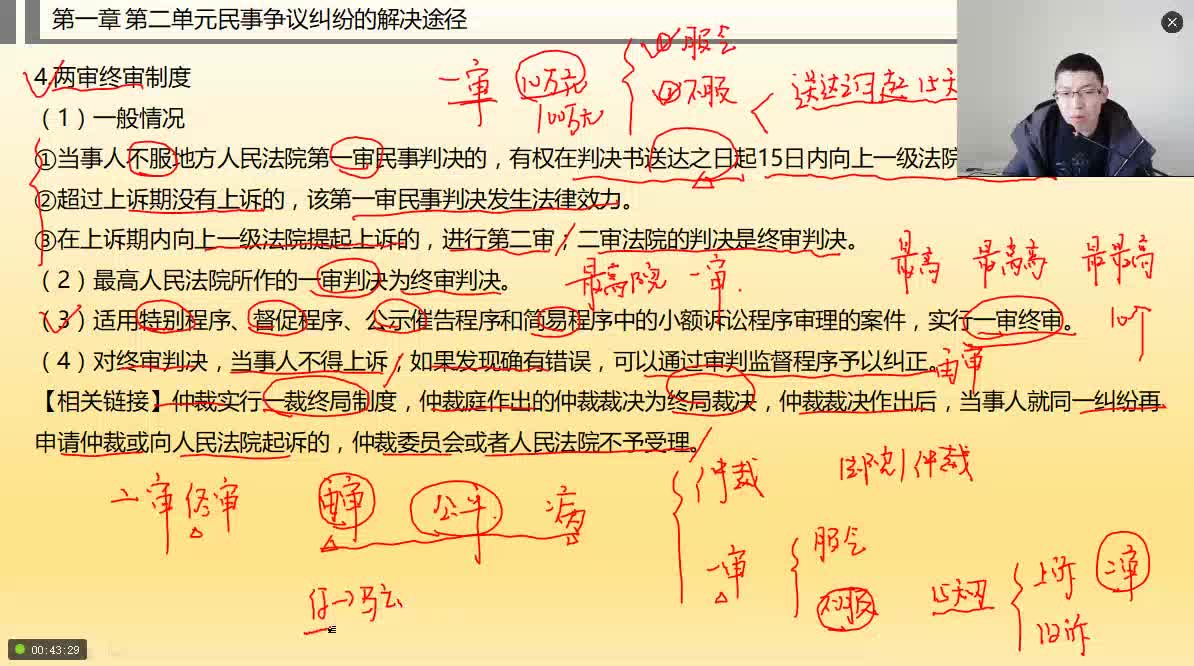 第一章 第二单元民事争议纠纷的解决途径
4.两审终审制度
一审 10万元 100万元 ①服气 ②不服 送达之日起15天
（1）一般情况
①当事人不服地方人民法院第一审民事判决的，有权在判决书送达之日起15日内向上一级法院
②超过上诉期没有上诉的，该第一审民事判决发生法律效力。
③在上诉期内向上一级法院提起上诉的，进行第二审；二审法院的判决是终审判决。
最高 最高高 最最高
（2）最高人民法院所作的一审判决为终审判决。
最高院 一审.
（3）适用特别程序、督促程序、公示催告程序和简易程序中的小额诉讼程序审理的案件，实行一审终审。
10个
（4）对终审判决，当事人不得上诉；如果发现确有错误，可以通过审判监督程序予以纠正。
再审
【相关链接】仲裁实行一裁终局制度，仲裁庭作出的仲裁裁决为终局裁决，仲裁裁决作出后，当事人就同一纠纷再
申请仲裁或向人民法院起诉的，仲裁委员会或者人民法院不予受理。
二审终审 再审 公平 仲裁 法院 仲裁
一审 服气 不服 15天内 上诉 二审
00:43:29